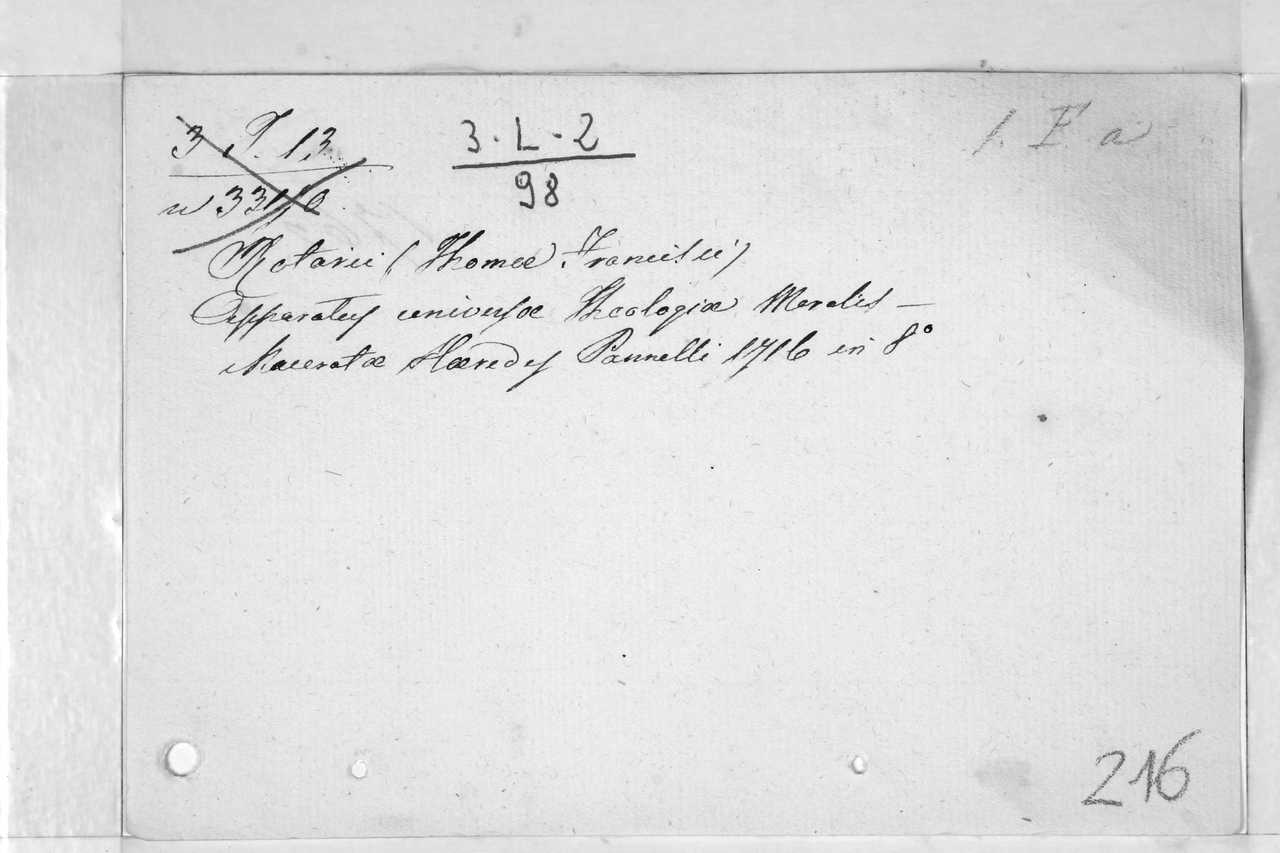 3 T. 13
3 · L · 2
98
1. F a
Rotarii (Thomæ Francisci)
Apparatus universæ Theologiæ Moralis —
Maceratæ Hæredes Pannelli 1716 in 8°
216